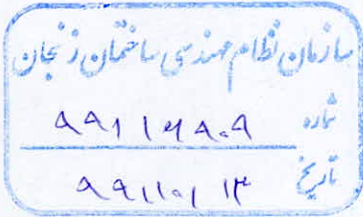 سازمان نظام مهندسی ساختمان زنجان
شماره
تاریخ ۹۹/۱۰/۱۳